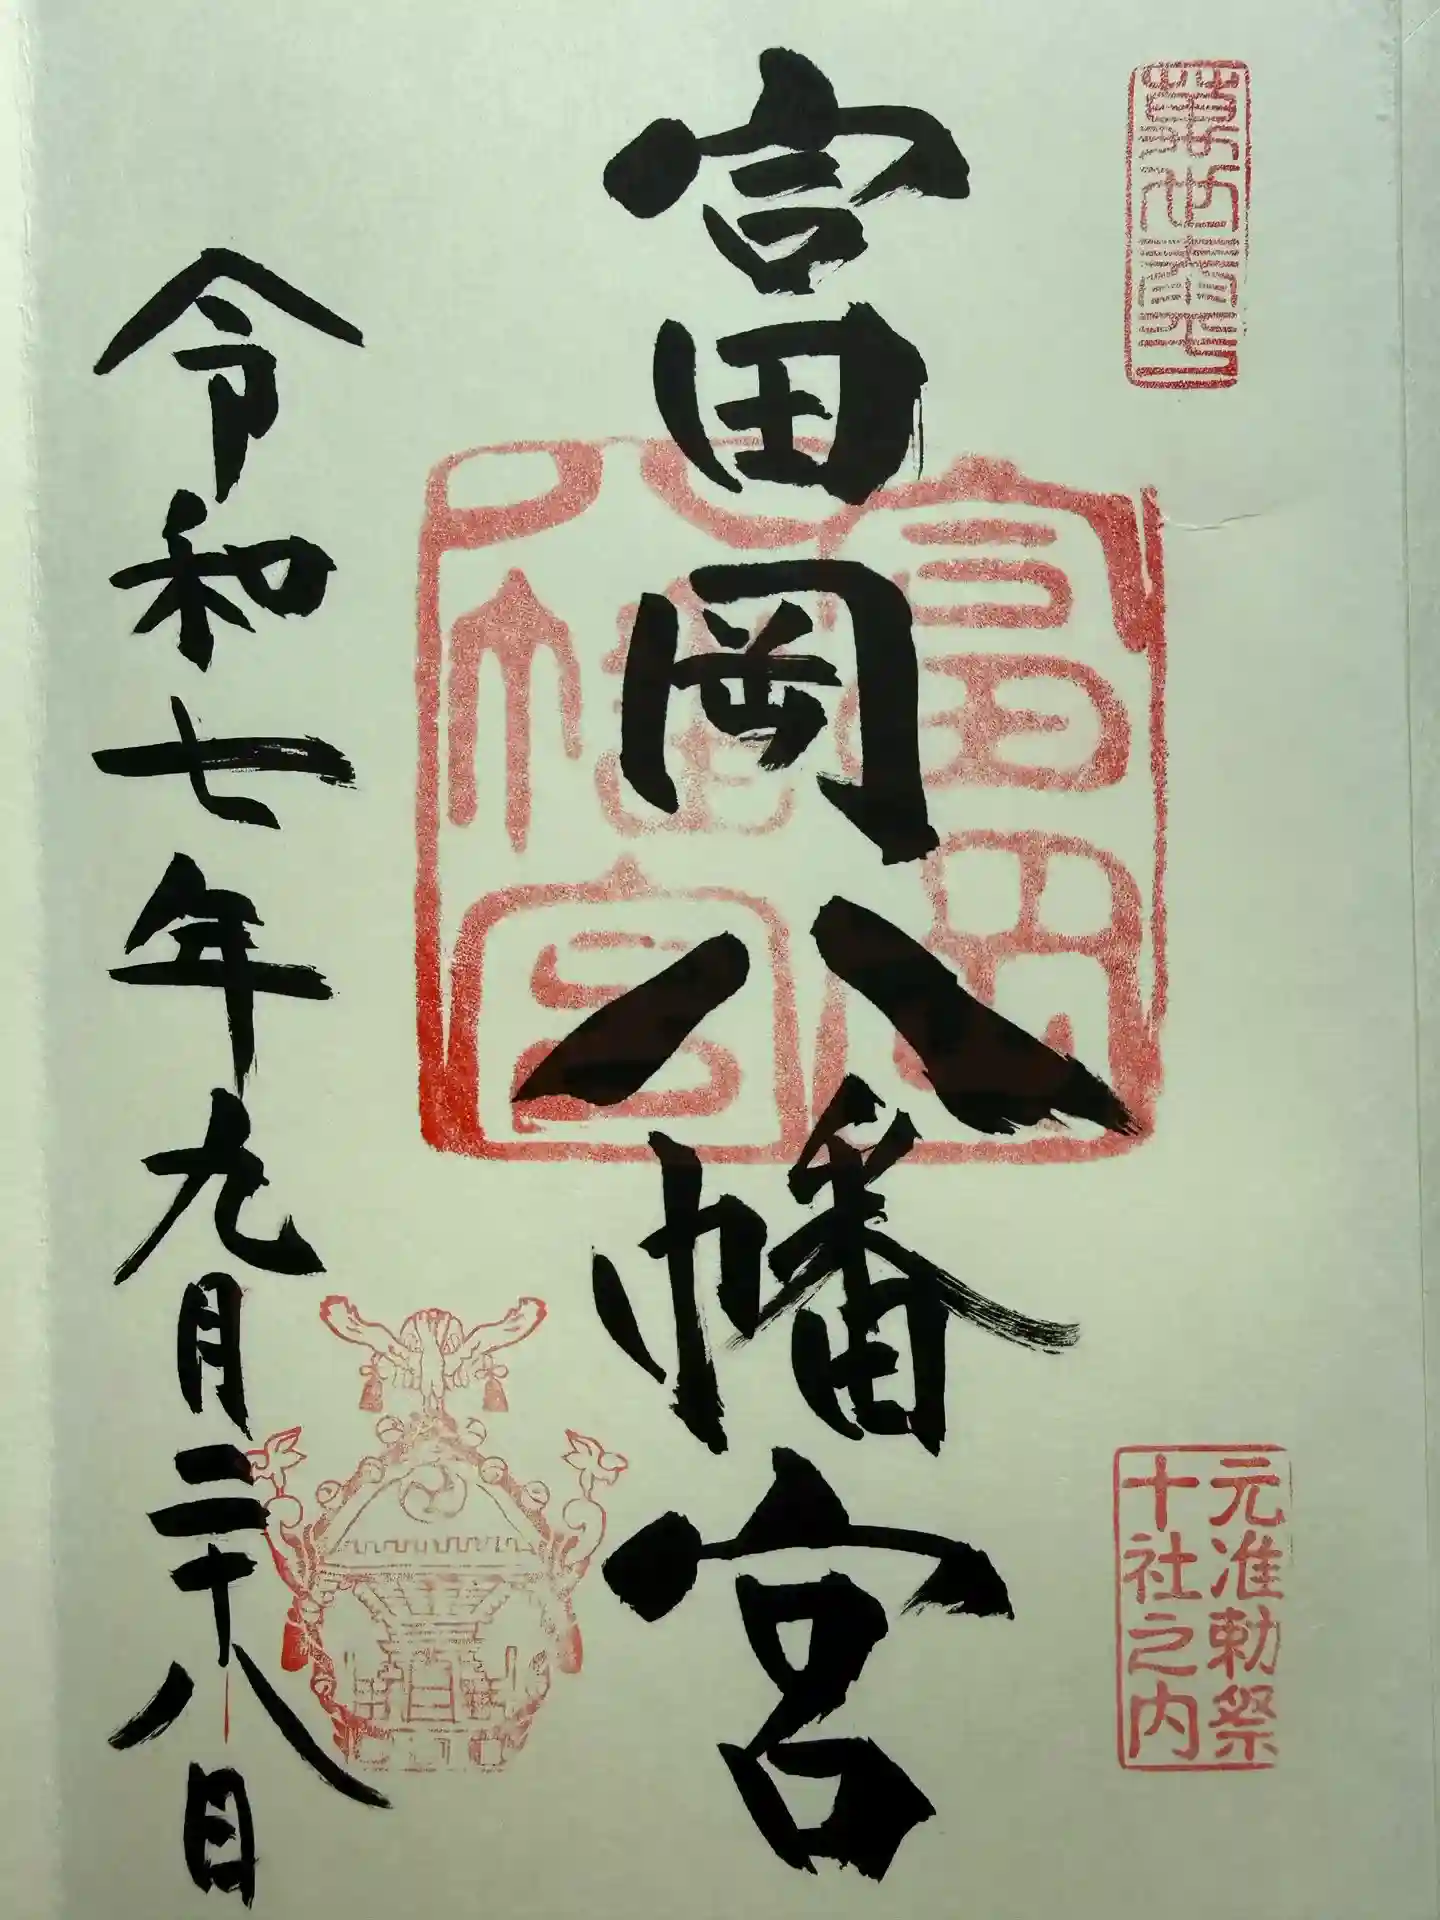 富岡八幡宮
元准勅祭
十社之内
富岡
八幡宮
令和七年九月二十八日